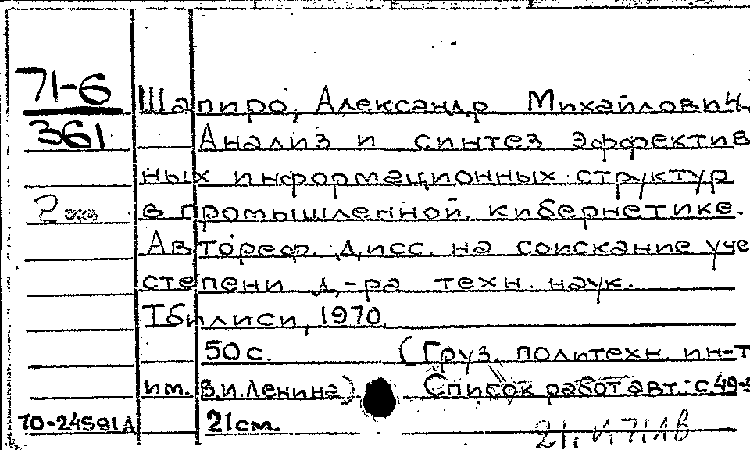 71-6
361
Шапиро, Александр Михайлович.
Анализ и синтез эффектив
ных информационных структур
2 экз
в промышленной кибернетике.
Автореф. дисс. на соискание уче
степени д-ра техн. наук.
Тбилиси, 1970.
50 с. (Груз. политехн. ин-т
им. В.И. Ленина) Список работ авт.: с. 49-
70-24591А 21 см.